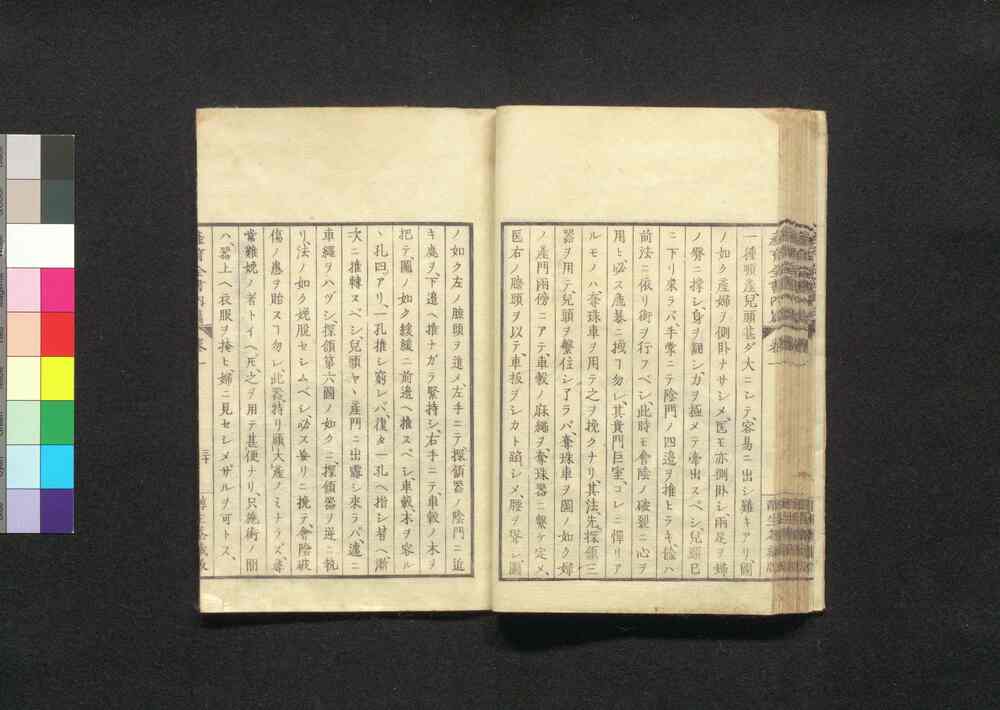 一種頭產、兒頭甚ダ大ニシテ、容易ニ出シ難キアリ、圖
ノ如ク產婦ヲ側臥ナサシメ、医モ亦側臥シ、兩足ヲ婦
ノ臀ニ撑シ、身ヲ翻シ、力ヲ極メテ牽出スベシ、兒頭已
ニ下リ來ラバ、手掌ニテ陰門ノ四邊ヲ推ヒラキ、餘ハ
前法ニ依リ術ヲ行フベシ、此時モ會陰ノ破裂ニ心ヲ
用ヒ、必ス麁暴ニ挽ヿ勿レ、其貴門巨室、コレニ憚リア
ルモノハ、奪珠車ヲ用テ之ヲ挽クナリ、其法、先探頷三
器ヲ用テ、兒頭ヲ繫住シ了ラバ、奪珠車ヲ圖ノ如ク婦
ノ產門兩傍ニアテ、車轂ノ麻繩ヲ、奪珠器ニ繫ケ定メ、
医右ノ膝頭ヲ以テ、車板ヲシカト蹈シメ、腰ヲ堅シ、圖
ノ如ク左ノ膝頭ヲ進メ、左手ニテ探頷器ノ陰門ニ近
キ處ヲ、下邊ヘ推ナガラ緊持シ、右手ニテ車轂ノ木ヲ
把テ、圖ノ如ク緩緩ニ前邊ヘ推スベシ、車轂、木ヲ容ル
ヽ孔四アリ、一孔推シ窮レバ、復タ一孔ヘ指シ替ヘ、漸
次ニ推轉スベシ、兒頭ヤヽ產門ニ出露シ來ラバ、遽ニ
車繩ヲハヅシ、探頷第六圖ノ如クニ、探頷器ヲ逆ニ執
リ、法ノ如ク娩脫セシムベシ、必ス妄リニ挽テ、會陰破
傷ノ患ヲ貽スヿ勿レ、此器、特リ頭大產ノミナラズ、尋
常難娩ノ者トイヘ𪜈、之ヲ用テ甚便ナリ、只施術ノ間
ハ、器上ヘ夜服ヲ掩ヒ、婦ニ見セシメザルヲ可トス、